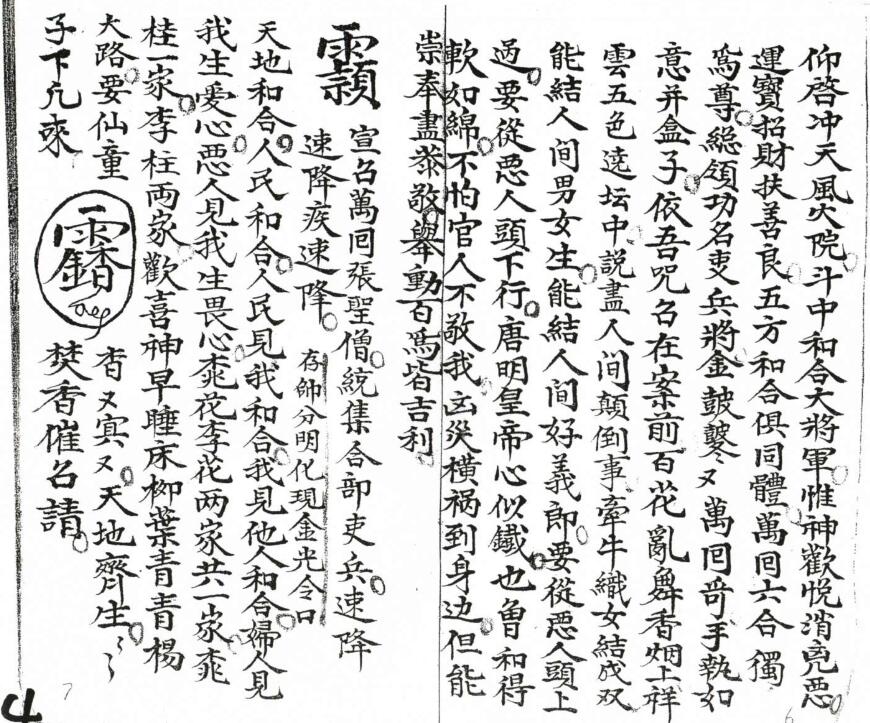 仰啓冲天風火院斗中和合大將軍惟神歡悅消兇惡
運寶招財扶善良五方和合俱同體萬回六合獨
爲尊総領功名吏兵將金皷鼕又萬回哥手執如
意并盒子依吾咒召在案前百花亂舞香烟上祥
雲五色遶坛中説盡人间顛倒事牽牛織女結成双
能結人间男女生能結人间好義郎要從惡人頭上
過要從惡人頭下行唐明皇帝心似鐵也曾和得
軟如綿不怕官人不敬我凶災橫祸到身边但能
崇奉盡恭敬舉動百爲皆吉利
宣召萬回張聖僧統集合部吏兵速降
速降疾速降 存帥分明化現金光令口
天地和合人民和合人民見我和合我見他人和合婦人見
我生愛心惡人見我生畏心桃花李花两家共一家桃
桂一家李柱两家歡喜神早睡床柳葉青青楊
大路要仙童 杳又冥又天地齊生
子下凡來 焚香催召請